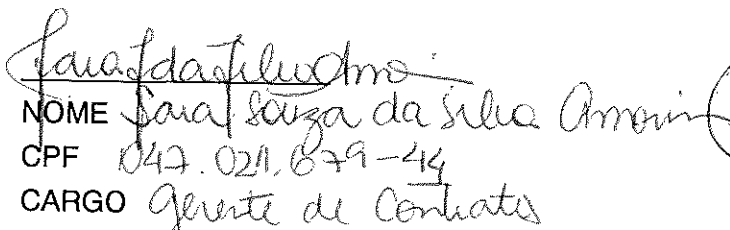 Sara S da Silva Amo
NOME Sara Souza da Silva Amorim
CPF 047.021.679-44
CARGO Gerente de Contratos